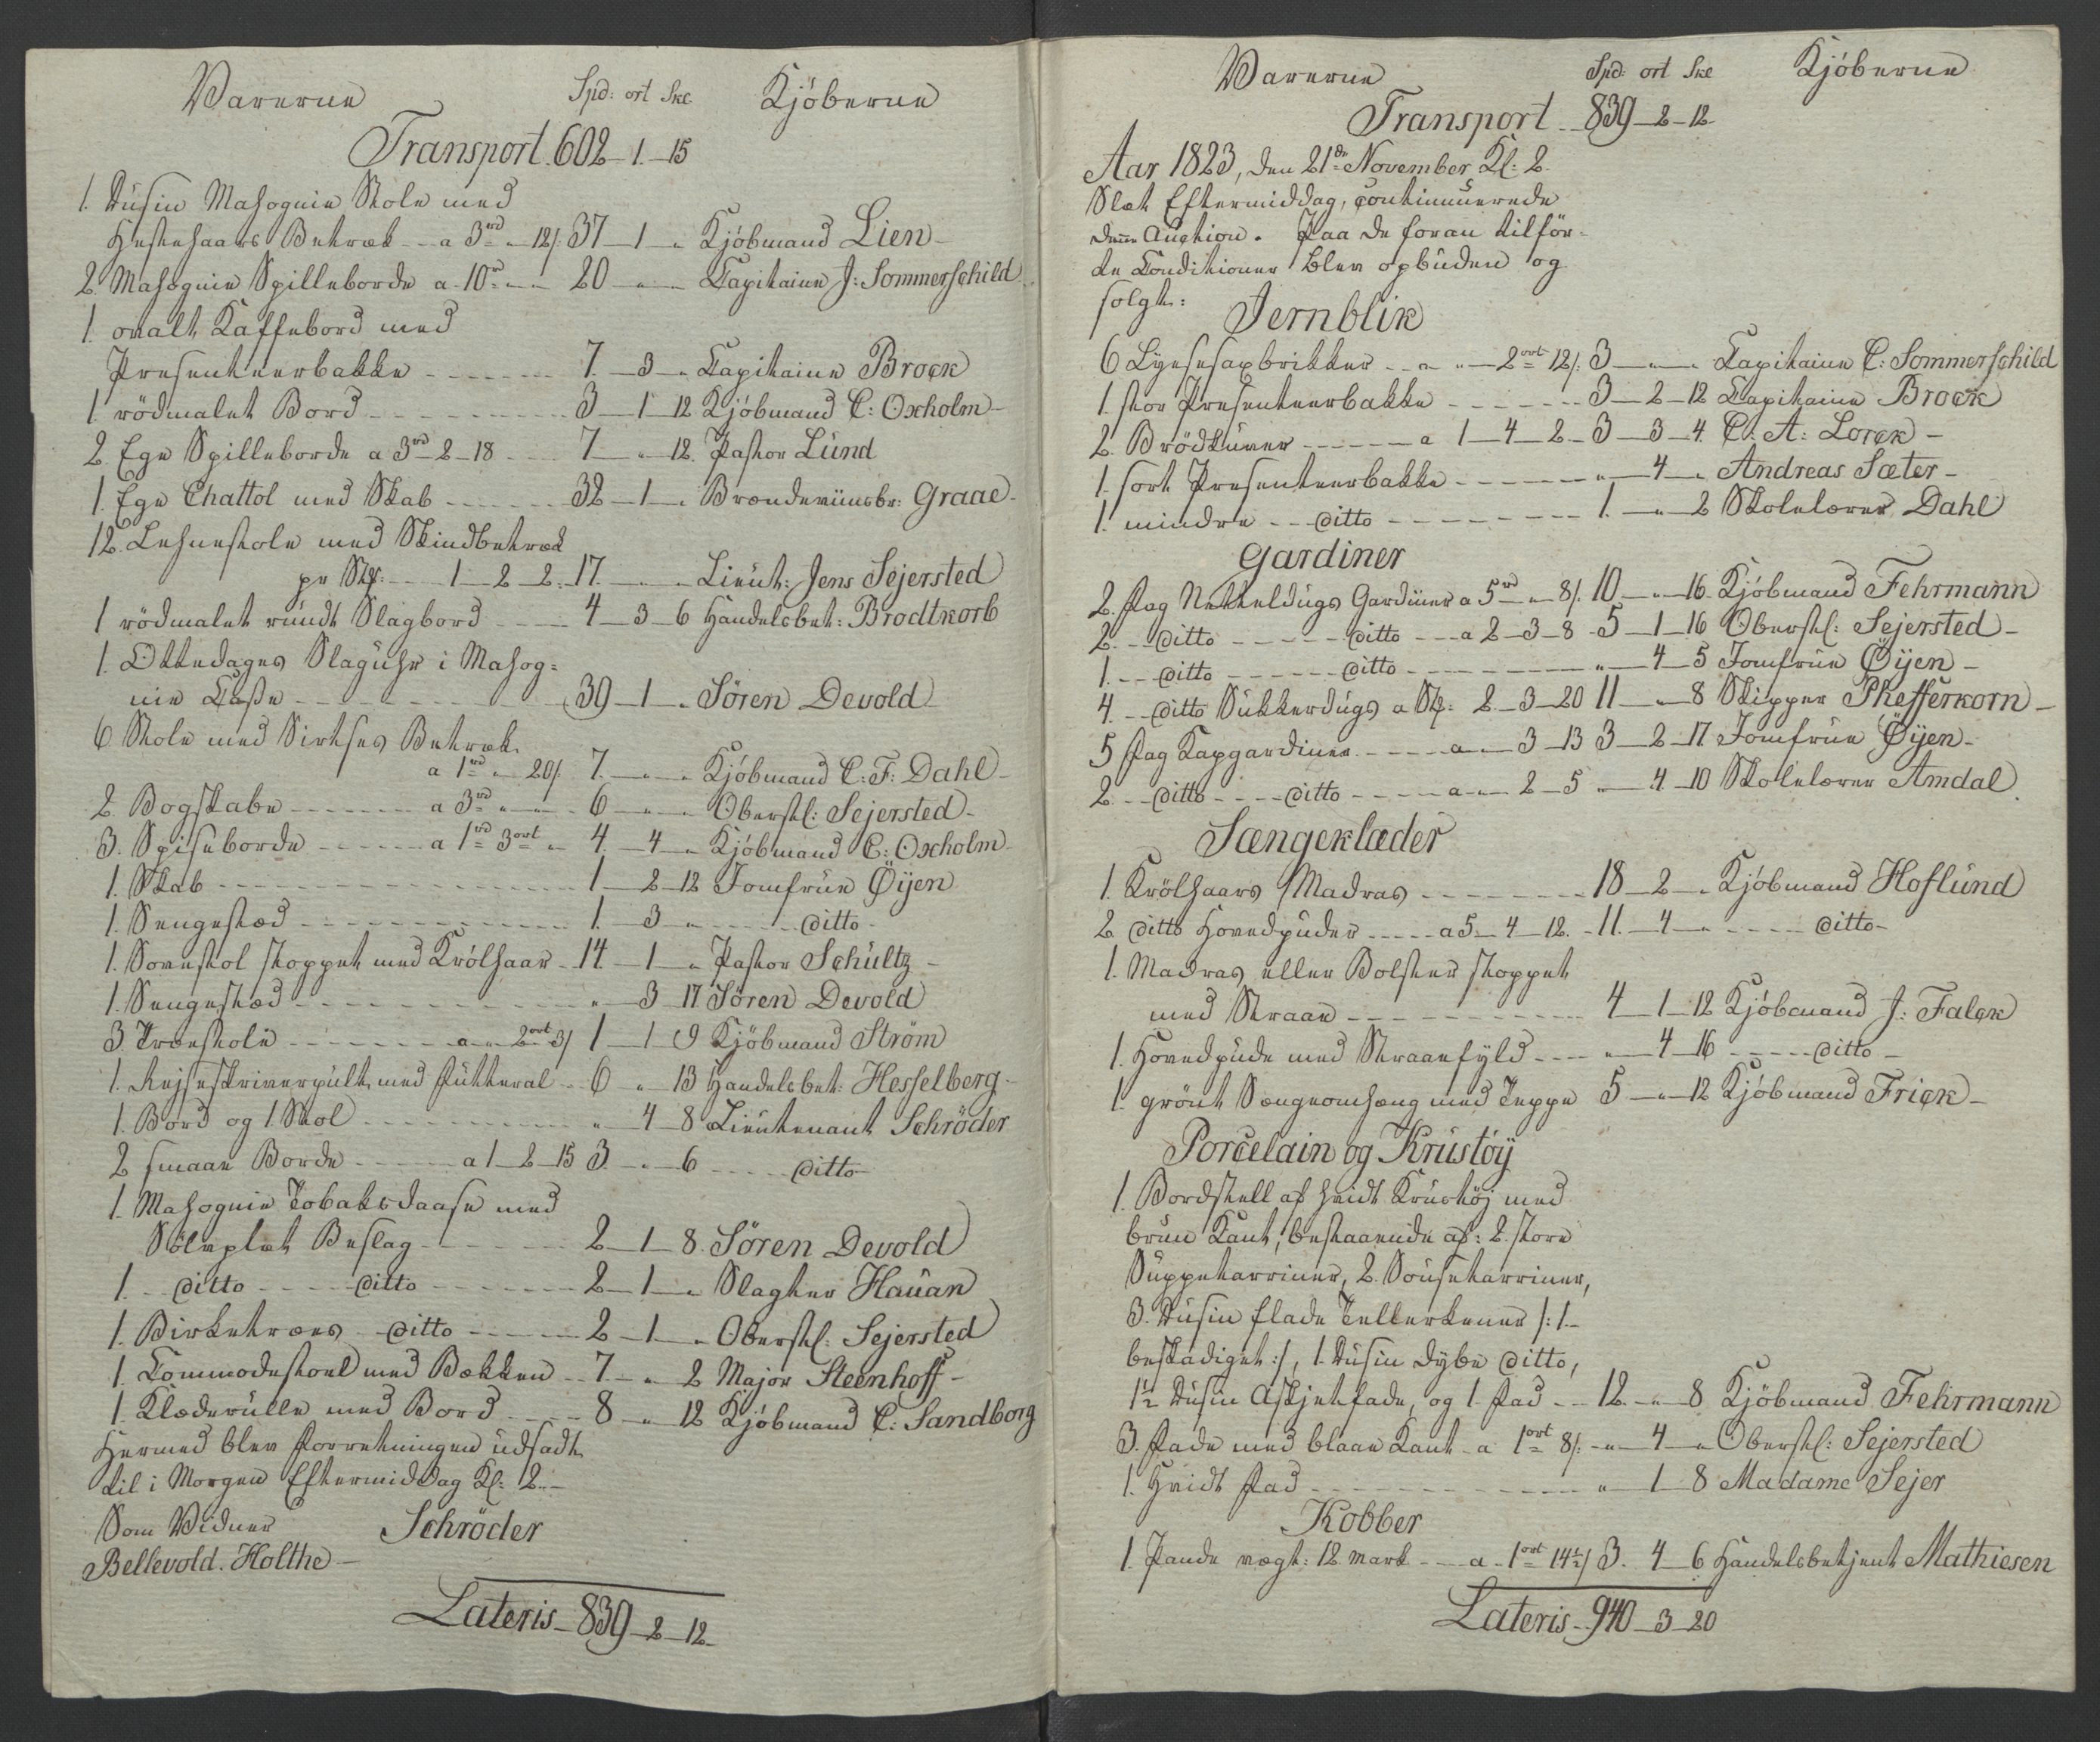 Varerne Spd: ort Sk: Kjöberne
Transport. 602-1-15
1. Dusin Mahognie Stole med
Hestehaars Betræk -- a 3rd " 12/: 37-1-" Kjöbmand Lien-
2. Mahognie Spilleborde a 10rd " - 20-"-" Capitaine J: Sommerschild
1. ovalt Kaffebord med
Presenteerbakke ------- 7.-3-" Capitaine Brock
1. rödmalet Bord --------- 3-1-12 Kjöbmand C: Oxholm-
2. Ege Spilleborde a 3rd 2-18 --- 7-"-12. Pastor Lund
1. Ege Chattol med Skab ------ 32-1-" Brændeviinsbr: Graae-
12. Lehnestole med Skindbetræk
pr Stk: ---- 1-2-2.-17.-"-" Lieut: Jens Sejersted
1 rödmalet rundt Slagbord ----- 4-3-6 Handelsbet: Brodtkorb
1. Ottedages Slaguhr i Mahog=
nie Casse ----------- 39-1-" Sören Devold
6 Stole med Sirtses Betræk.
a 1rd " 20/: 7.-"-" Kjöbmand C: F: Dahl-
2. Bogskabe ------- a 3rd " - " - 6-"-" Oberstl: Sejersted-
3. Spiseborde ------ a 1rd 3ort " - 4.-4-" Kjöbmand C: Oxholm-
1. Skab ---------------- 1-2-12 Jomfrue Öyen
1. Sengestæd ------------ 1.-3-" ----- ditto-
1. Sovestol stoppet med Krölhaar - 14.-1-" Pastor Schültz-
1. Sengestæd ------------ "-3-17 Sören Devold
3. Træestole ------- a-"-2ort 3/ 1-1-9 Kjöbmand Ström
1. Rejseskriverpult med Futteral -- 6-"-13 Handelsbet: Hesselberg-
1. Bord og 1 Stol ---------- "-4-8 Lieutenant Schröder
2 smaae Borde ----- a 1-2-15 3.-"-6 ---- ditto-
1. Mahognie Tobaksdaase med
Sölvplet Beslag ------ 2-1-8. Sören Devold
1.-- ditto ---- ditto ------ 2-1-" Slagter Hauan
1. Birketræes - ditto ------ 2-1-" Oberstl: Sejersted
1. Commodestoel med Bækken -- 7-"-2 Major Steenhoff-
1. Klæderulle med Bord ---- 8-"-12 Kjöbmand C: Sandborg
Hermed blev Forretningen udsadt
til i Morgen Eftermiddag Kl: 2.-
Som Vidner Schröder
Bellevold. Holthe-
Lateris-839-2-12-
Varerne Spd: ort Ske Kjöberne
Transport -- 839-2-12-
Aar 1823, den 21de November Kl: 2
Slæt Eftermiddag, continuerede
denne Auction. Paa de foran tilför-
te Conditioner blev opbuden og
solgt:
Jernblik
6 Lysesaxbrikker -- a "-2ort 12/: 3-"-" Capitaine C: Sommerschild
1. stor Presenteerbakke ------ 3-2-12 Capitaine Brock
2. Brödkurve ------ a 1-4-2-3-3-4. C: A: Lorck-
1. sort Presenteerbakke ------ "-4-" Andreas Sæter-
1. mindre -- ditto -------- 1.-"-2 Skolelærer Dahl
Gardiner
2. Fag Netteldugs Gardiner a 5rd " 8/: 10-"-16. Kjöbmand Fehrmann
2.-- ditto ----- ditto --- a 2-3-8-5-1-16 Oberstl: Sejersted-
1.-- ditto ----- ditto -------- "-4-5 Jomfrue Öyen-
4.-- ditto Sukkerdugs a Stk: 2-3-20 11-"-8 Skipper Phefferkorn-
5 Fag Kapgardiner ----- a-"-3-13 3-2-17 Jomfrue Öyen-
2.-- ditto --- ditto ----- a-"-2-5 "-4-10 Skolelærer Amdal.
Sængeklæder
1. Krölhaars Madras -------- 18-2-" Kjöbmand Hoflund
2 ditto Hovedpuder ---- a 5-4-12.-11.-4-" ---- ditto-
1. Madras eller Bolster stoppet
med Straae ----------- 4-1-12 Kjöbmand J: Falck
1. Hovedpude med Straaefyld --- "-4-16 ---- ditto-
1. grönt Sængeomhæng med Teppe 5-"-12 Kjöbmand Frick-
Porcelain og Krustöy
1. Bordstell af hvidt Krustöj med
brun Kant, bestaaende af: 2. store
Suppeterriner, 2. Souseterriner,
3. Dusin flade Tellerkener /: 1-
beskadiget :/, 1. Dusin dybe ditto,
1½ Dusin Asjetfade, og 1 Fad -- 12.-"-8 Kjöbmand Fehrmann
3. Fade med blaae Kant - a 1ort 8/: "-4-" Oberstl: Sejersted
1. Hvidt Fad ------------ "-1-8 Madame Sejer
Kobber
1. Pande vægt: 12. mark --- a-1ort 14½/ 3.-4-6 Handelsbetjent Mathiesen
Lateris--940-3-20